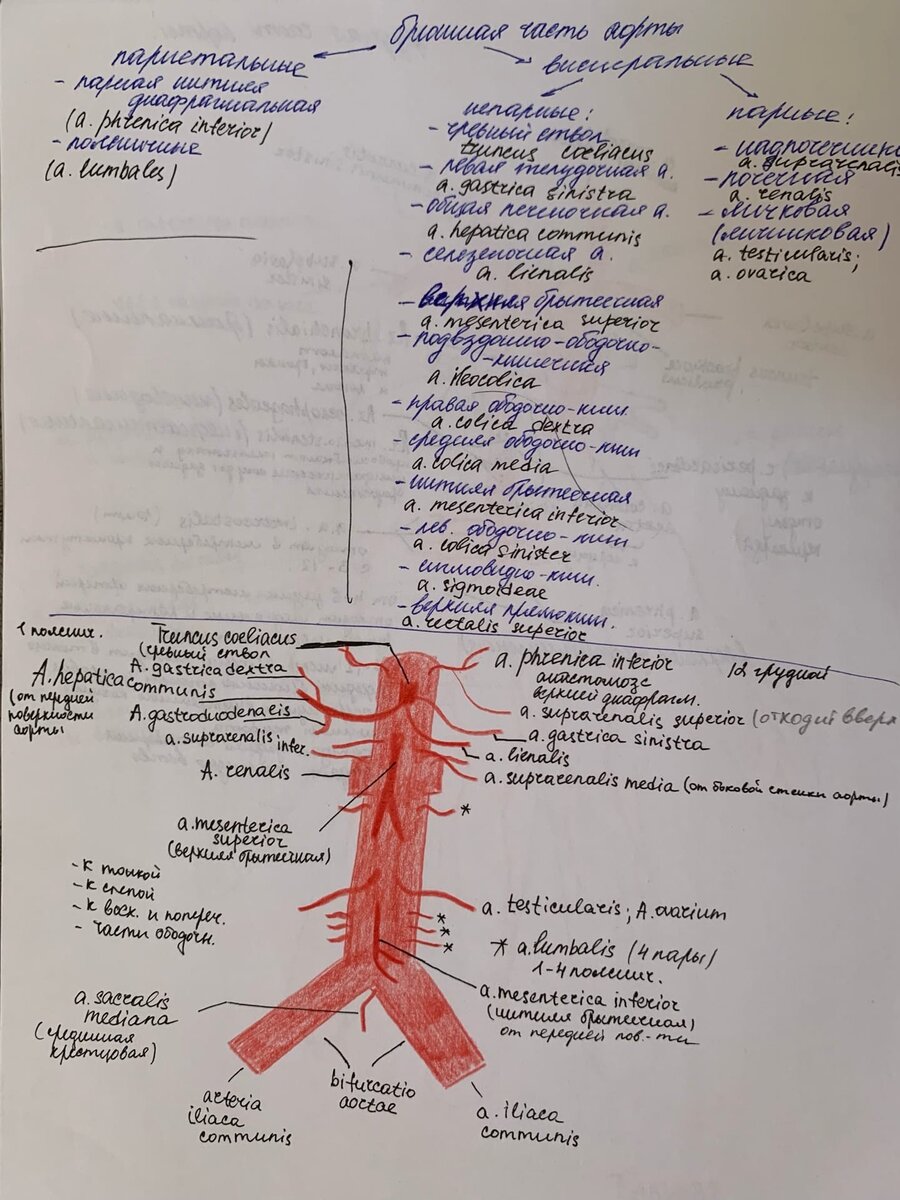 брюшная часть аорты
париетальные
- парная нижняя
диафрагмальная
(a. phrenica inferior)
- поясничные
(a. lumbales)
висцеральные
непарные:
- чревный ствол
truncus coeliacus
- левая желудочная а.
a. gastrica sinistra
- общая печеночная а.
a. hepatica communis
- селезеночная а.
a. lienalis
- верхняя брыжеечная
a. mesenterica superior
- подвздошно-ободочно-
-кишечная
a. ileocolica
- правая ободочно-киш.
a. colica dextra
- средняя ободочно-киш
a. colica media
- нижняя брыжеечная
a. mesenterica inferior
- лев. ободочно-киш
a. colica sinister
- сигмовидно-киш.
a. sigmoideae
- верхняя прямокиш.
a. rectalis superior
парные:
- надпочечник
a. suprarenalis
- почечная
a. renalis
- яичковая
(яичниковая)
a. testicularis;
a. ovarica
1 пояснич.
Truncus coeliacus
(чревный ствол
A. gastrica dextra
A. hepatica communis
(от передней
поверхности
аорты
A. gastroduodenalis
a. suprarenalis infer.
A. renalis
a. mesenterica
superior
(верхняя брыжеечная)
- к тонкой
- к слепой
- к восх. и попереч.
- части ободочн.
a. sacralis
mediana
(срединная
крестцовая)
arteria
iliaca
communis
bifurcatio
aortae
a. iliaca
communis
a. phrenica inferior
анастомоз с
верхней диафрагм.
12 грудной
a. suprarenalis superior (отходит вверх
a. gastrica sinistra
a. lienalis
a. suprarenalis media (от боковой стенки аорты)
*
a. testicularis; A. ovarium
*
*
*
* a. lumbalis (4 пары)
1-4 пояснич.
a. mesenterica inferior
(нижняя брыжеечная)
от передней пов.-ти